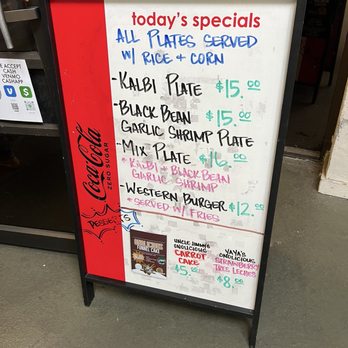 WE ACCEPT
CASH
VENMO
CASHAPP
today's specials
ALL PLATES SERVED
W/ RICE + CORN
- KALBI PLATE $15.00
- BLACK BEAN $15.00
GARLIC SHRIMP PLATE
- MIX PLATE $16.00
* KALBI + BLACK BEAN
GARLIC SHRIMP
- WESTERN BURGER $12.00
* SERVED W/ FRIES
Coca-Cola
ZERO SUGAR
UNCLE
ONOLICIOUS
CARROT
CAKE
$5.00
YAYA'S
ONOLICIOUS
STRAWBERRY
TRES LECHES
$8.00